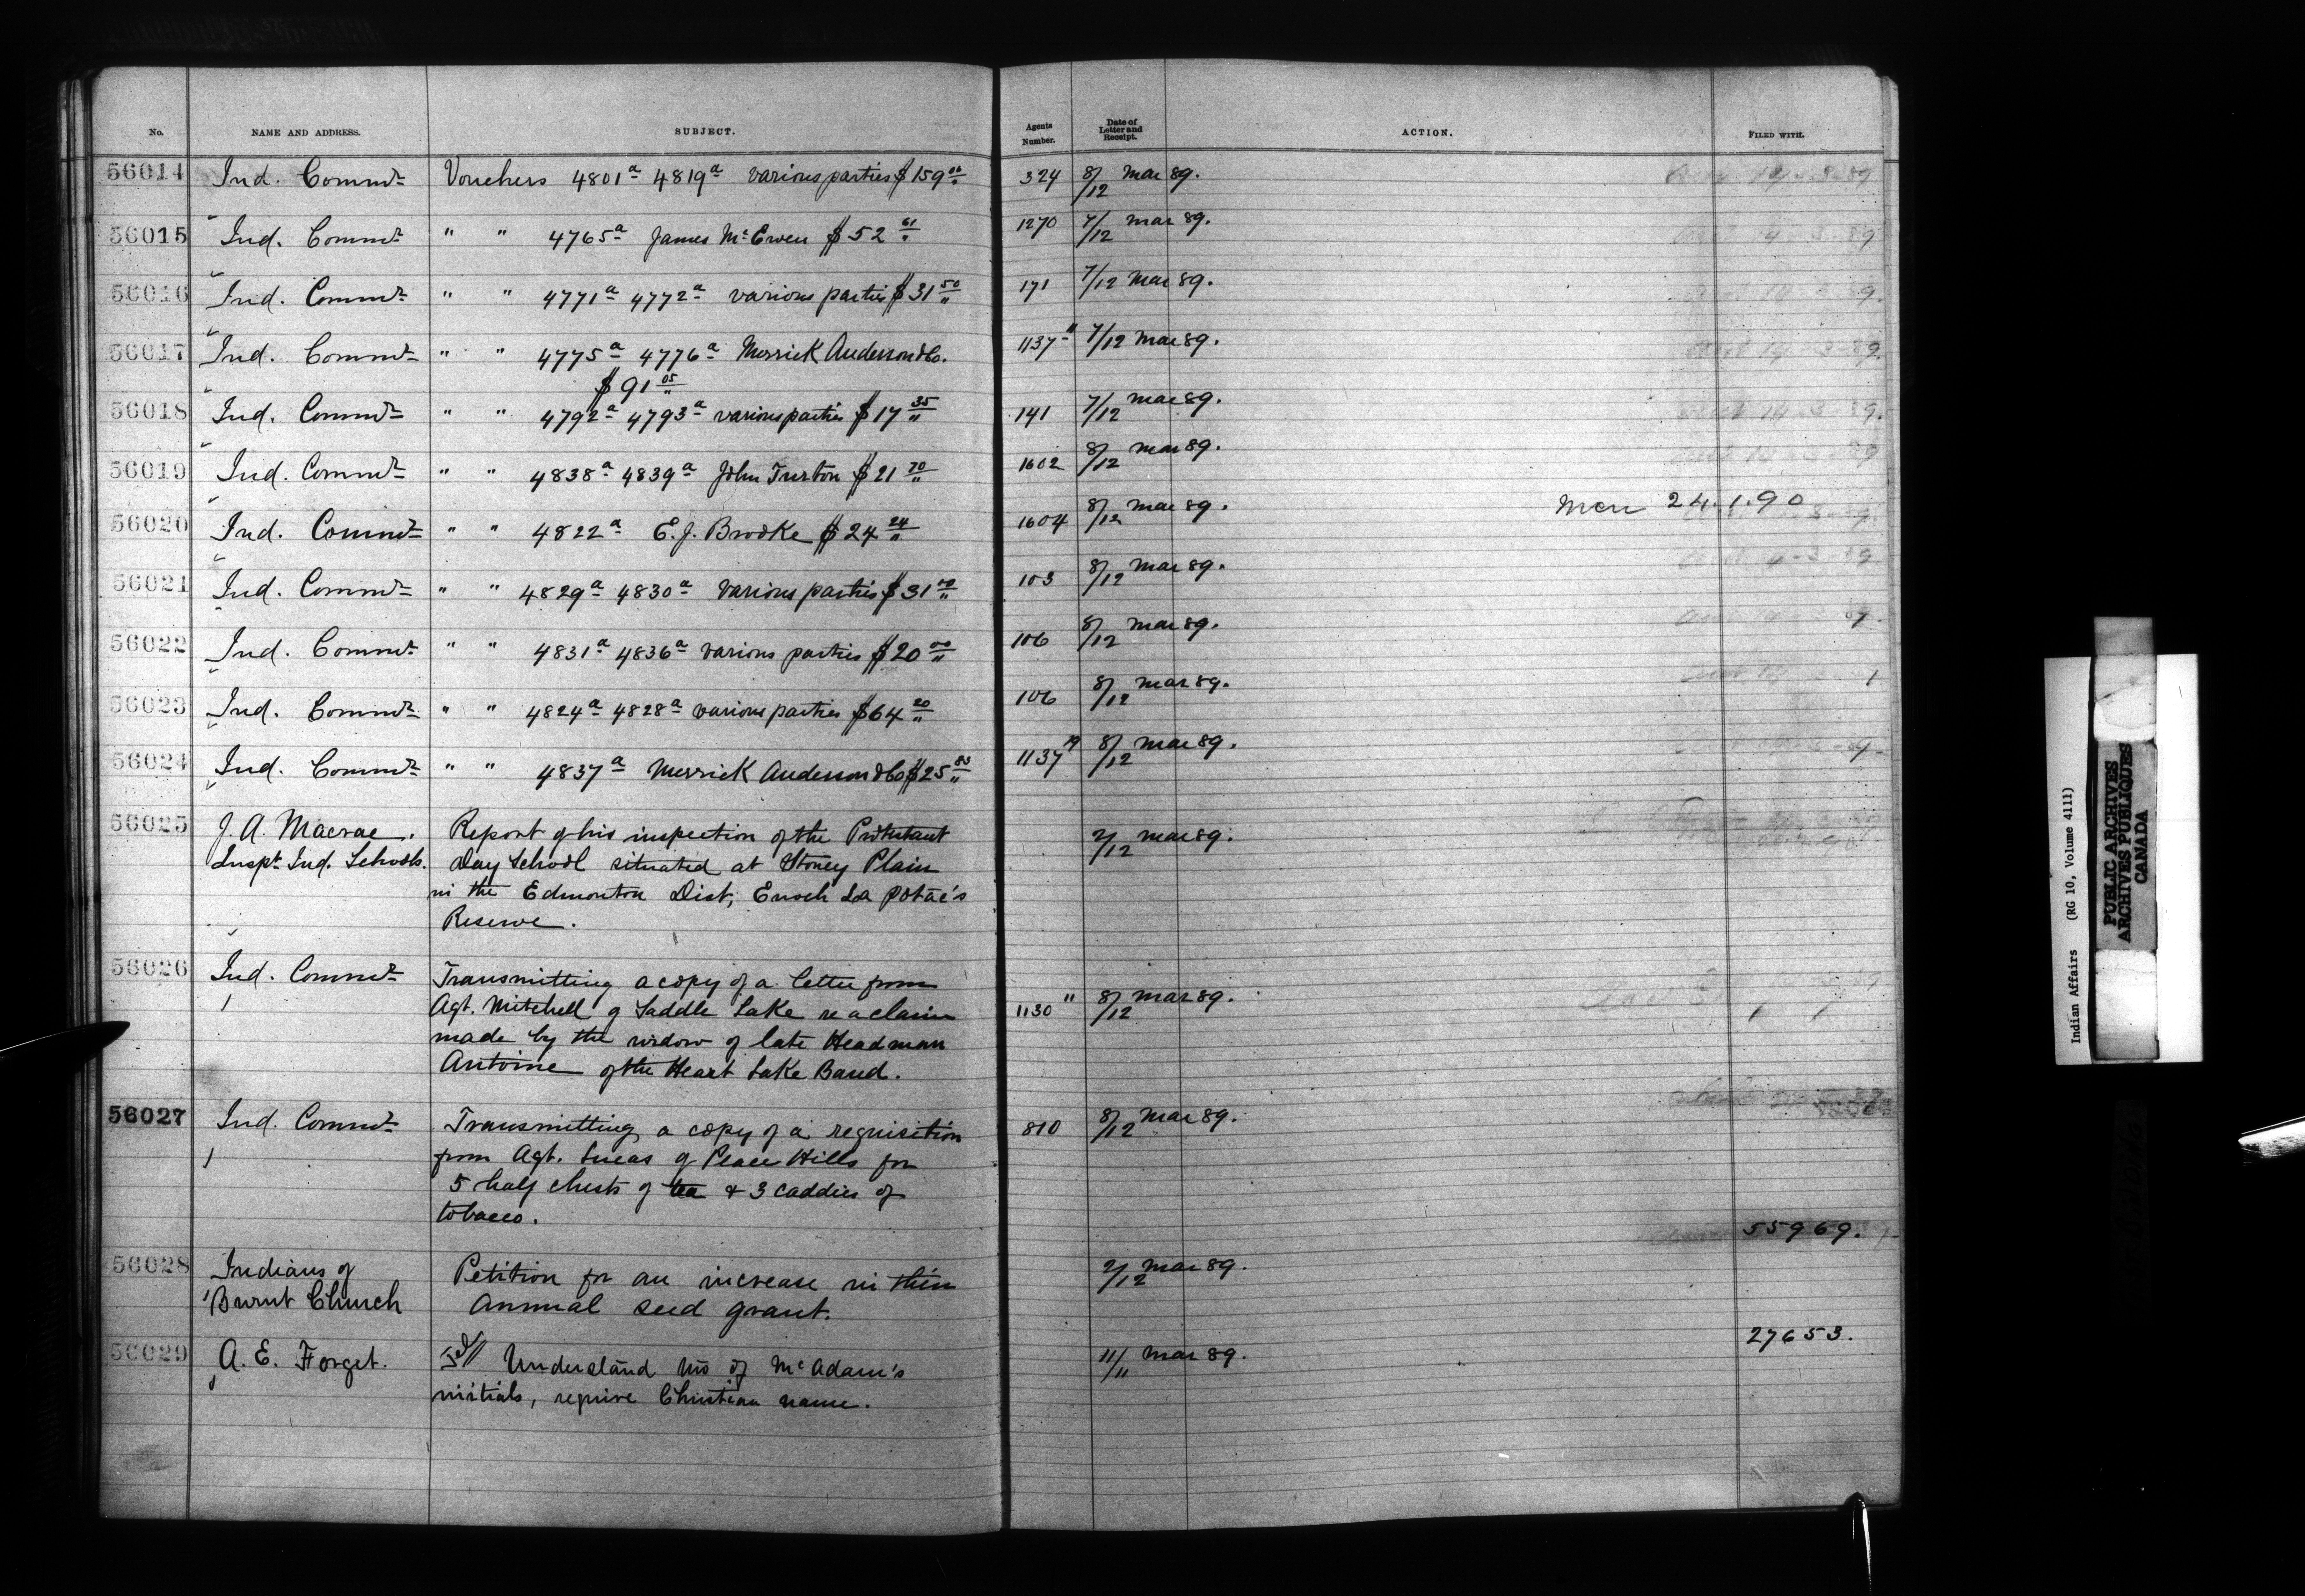 No. NAME AND ADDRESS. SUBJECT. Agents Number. Date of Letter and Receipt. ACTION. FILED WITH.
56014 Ind. Commr Vouchers 4801a 4819a various parties $159 00 324 8/12 Mar 89.
56015 Ind. Commr " " 4765a James McEwen $52 61 1270 7/12 Mar 89.
56016 Ind. Commr " " 4771a 4772a various parties $31 50 171 7/12 Mar 89.
56017 Ind. Commr " " 4775a 4776a Merrick Anderson & Co. 1137 " 7/12 Mar 89.
$91 05
56018 Ind. Commr " " 4792a 4793a various parties $17 35 141 7/12 Mar 89.
56019 Ind. Commr " " 4838a 4839a John Turton $21 70 1602 8/12 Mar 89.
56020 Ind. Commr " " 4822a E.J. Brooke $24 24 1604 8/12 Mar 89. 24.1.90
56021 Ind. Commr " " 4829a 4830a Various parties $31 103 8/12 Mar 89.
56022 Ind. Commr " " 4831a 4836a various parties $20 00 106 8/12 Mar 89.
56023 Ind. Commr " " 4824a 4828a various parties $64 20 106 8/12 Mar 89.
56024 Ind. Commr " " 4837a Merrick Anderson & Co $25 1137 19 8/12 Mar 89.
56025 J. A. Macrae. Report of his inspection of the Protestant 2/12 Mar 89.
Inspt Ind. Schools. Day School situated at Stoney Plain
in the Edmonton Dist, Enoch La Potac's
Reserve.
56026 Ind. Commr Transmitting a copy of a letter from 1130 " 8/12 Mar 89.
Agt. Mitchell of Saddle Lake re a claim
made by the widow of late Headman
Antoine of the Heart Lake Band.
56027 Ind. Commr Transmitting a copy of a requisition 810 8/12 Mar 89.
from Agt. Lucas of Peace Hills for
5 half chests of tea & 3 caddies of
tobacco.
55969.
56028 Indians of Petition for an increase in their 2/12 Mar 89.
Burnt Church annual seed grant.
27653.
56029 A. E. Forget. Understand no of McAdam's 11/11 Mar 89.
initials, require Christian name.
Indian Affairs (RG 10, Volume 4111)
PUBLIC ARCHIVES
ARCHIVES PUBLIQUES
CANADA